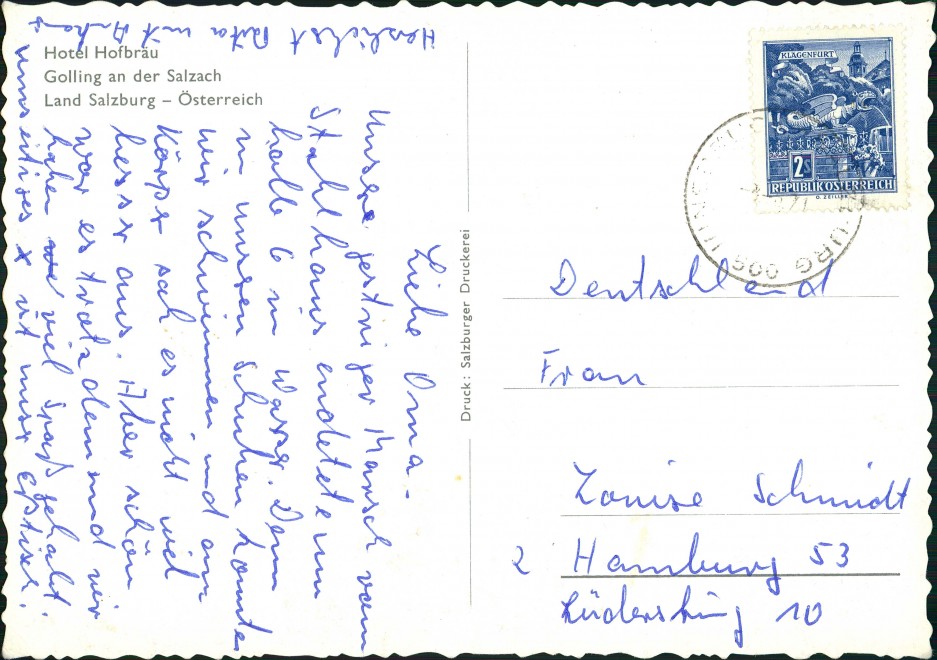 Hotel Hofbräu
Golling an der Salzach
Land Salzburg – Österreich
Liebe Oma.
Unser gestriger Marsch vom
Stahlhaus endete um
halb 6 im Wasser. Denn
in unseren Schuhen konnten
wir schwimmen und am
Körper sah es nicht viel
besser aus. Aber schön
war es trotzdem und wir
haben viel Spaß gehabt.
umseitiges x ist unser Eßtisch.
Herzlichst Rita mit Anhang
Druck: Salzburger Druckerei
KLAGENFURT
2S
REPUBLIK ÖSTERREICH
O. ZEILLER
Deutschland
Frau
Louise Schmidt
2 Hamburg 53
Lüdersring 10